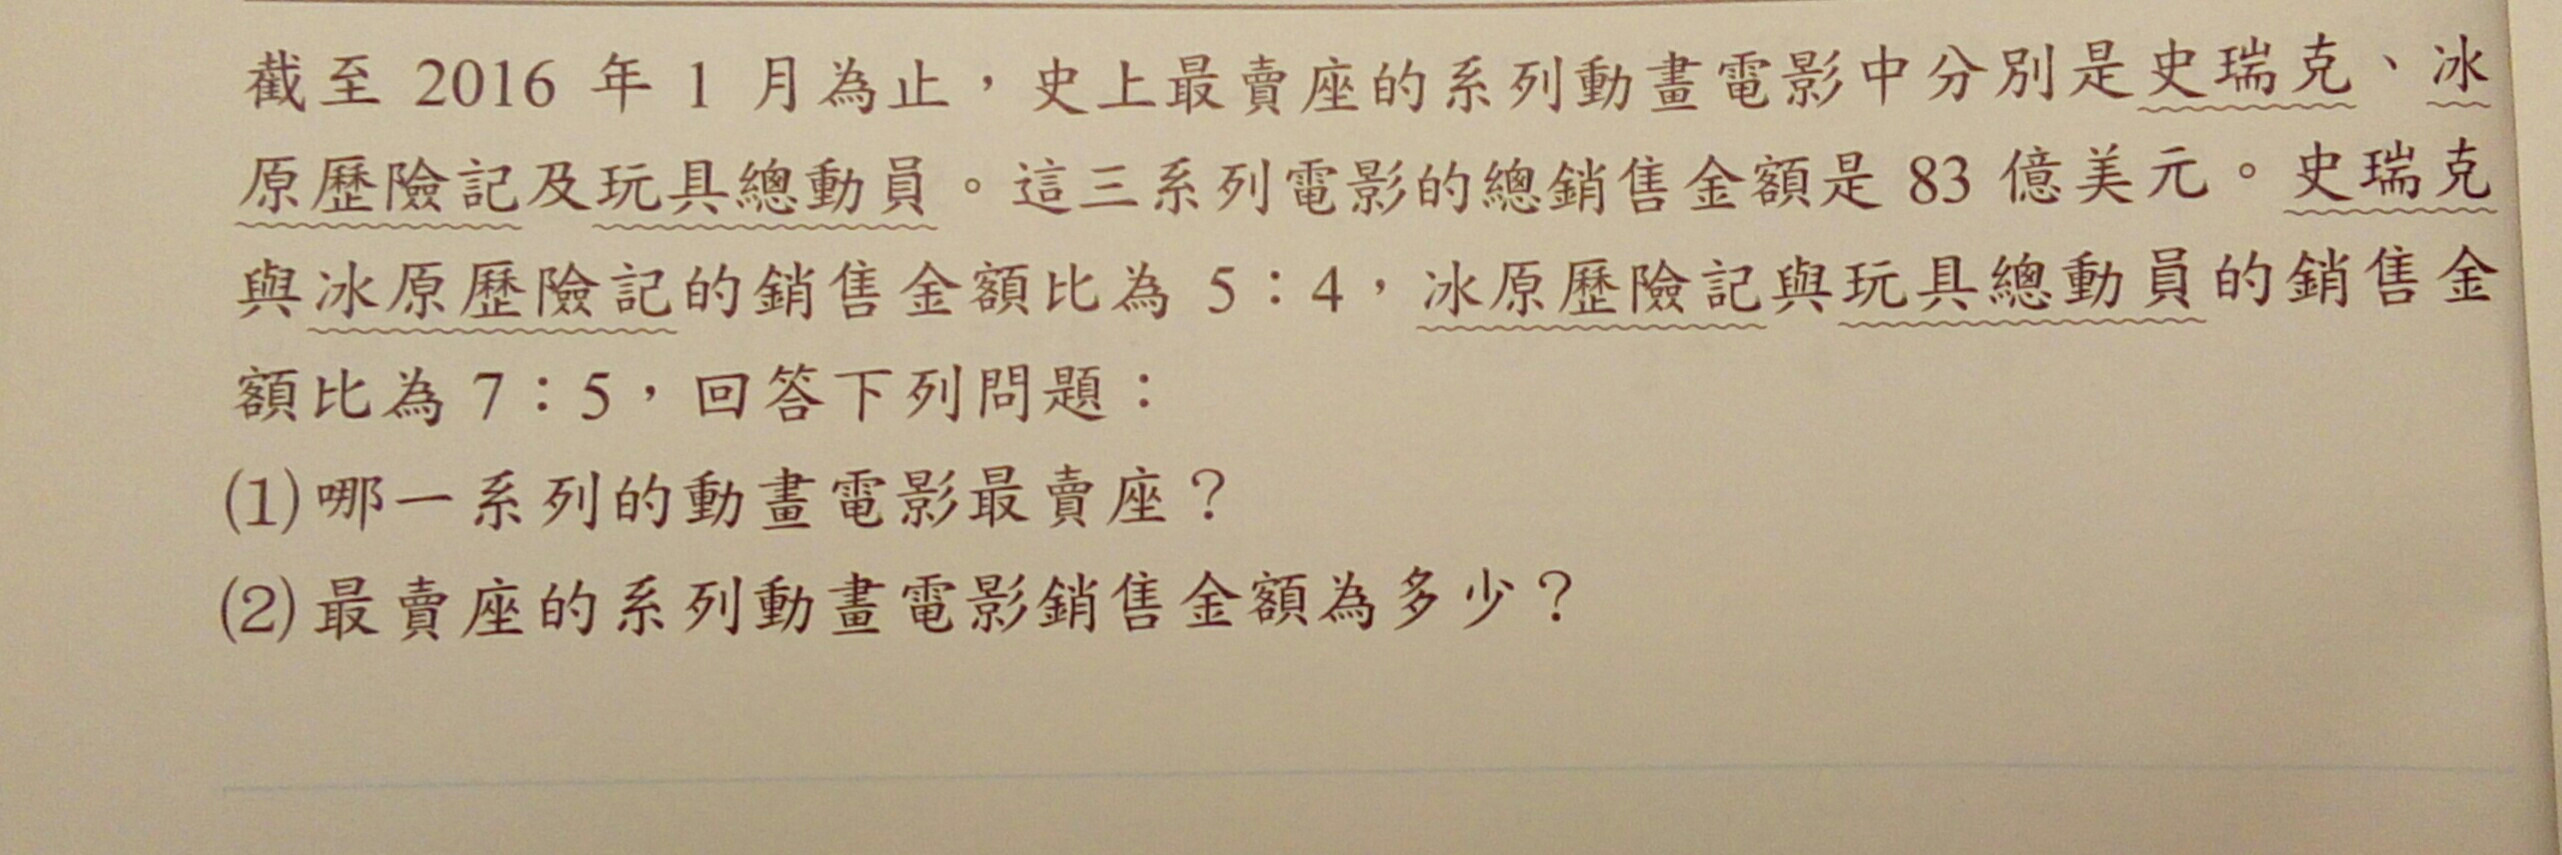 截至 2016 年 1 月為止，史上最賣座的系列動畫電影中分別是史瑞克、冰
原歷險記及玩具總動員。這三系列電影的總銷售金額是 83 億美元。史瑞克
與冰原歷險記的銷售金額比為 5：4，冰原歷險記與玩具總動員的銷售金
額比為 7：5，回答下列問題：
(1)哪一系列的動畫電影最賣座？
(2)最賣座的系列動畫電影銷售金額為多少？